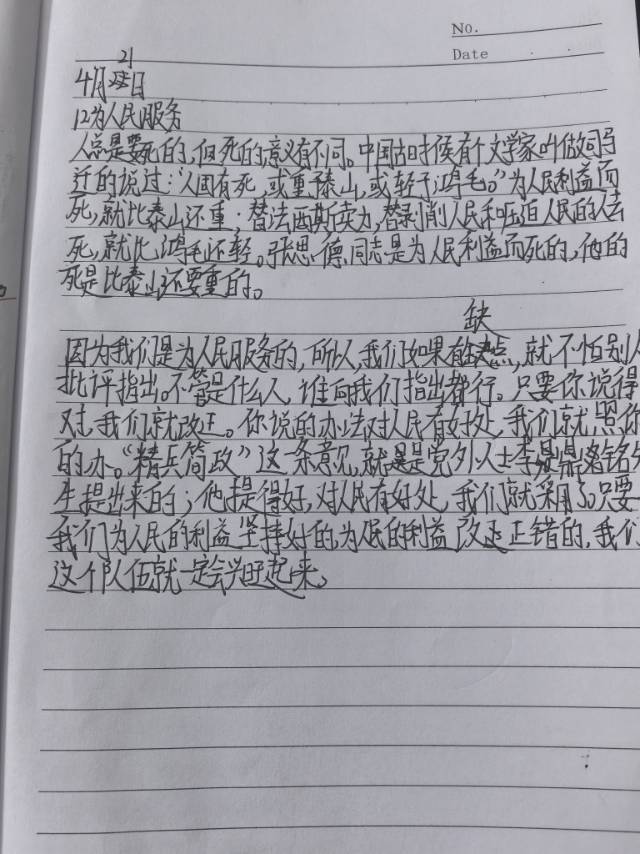 No.
Date
21
4月日
12为人民服务
人总是要死的,但死的意义有不同。中国古时候有个文学家叫做司马
迁的说过:“人固有死,或重于泰山,或轻于鸿毛。”为人民利益而
死,就比泰山还重;替法西斯卖力,替剥削人民和压迫人民的人去
死,就比鸿毛还轻。张思德同志是为人民利益而死的,他的
死是比泰山还要重的。
缺
因为我们是为人民服务的,所以,我们如果有点,就不怕别人
批评指出。不管是什么人,谁向我们指出都行。只要你说得
对,我们就改正。你说的办法对人民有好处,我们就照你
的办。“精兵简政”这一条意见,就是党外人士李鼎铭先
生提出来的;他提得好,对人民有好处,我们就采用了。只要
我们为人民的利益坚持好的,为人民的利益改正错的,我们
这个队伍就一定会兴旺起来。